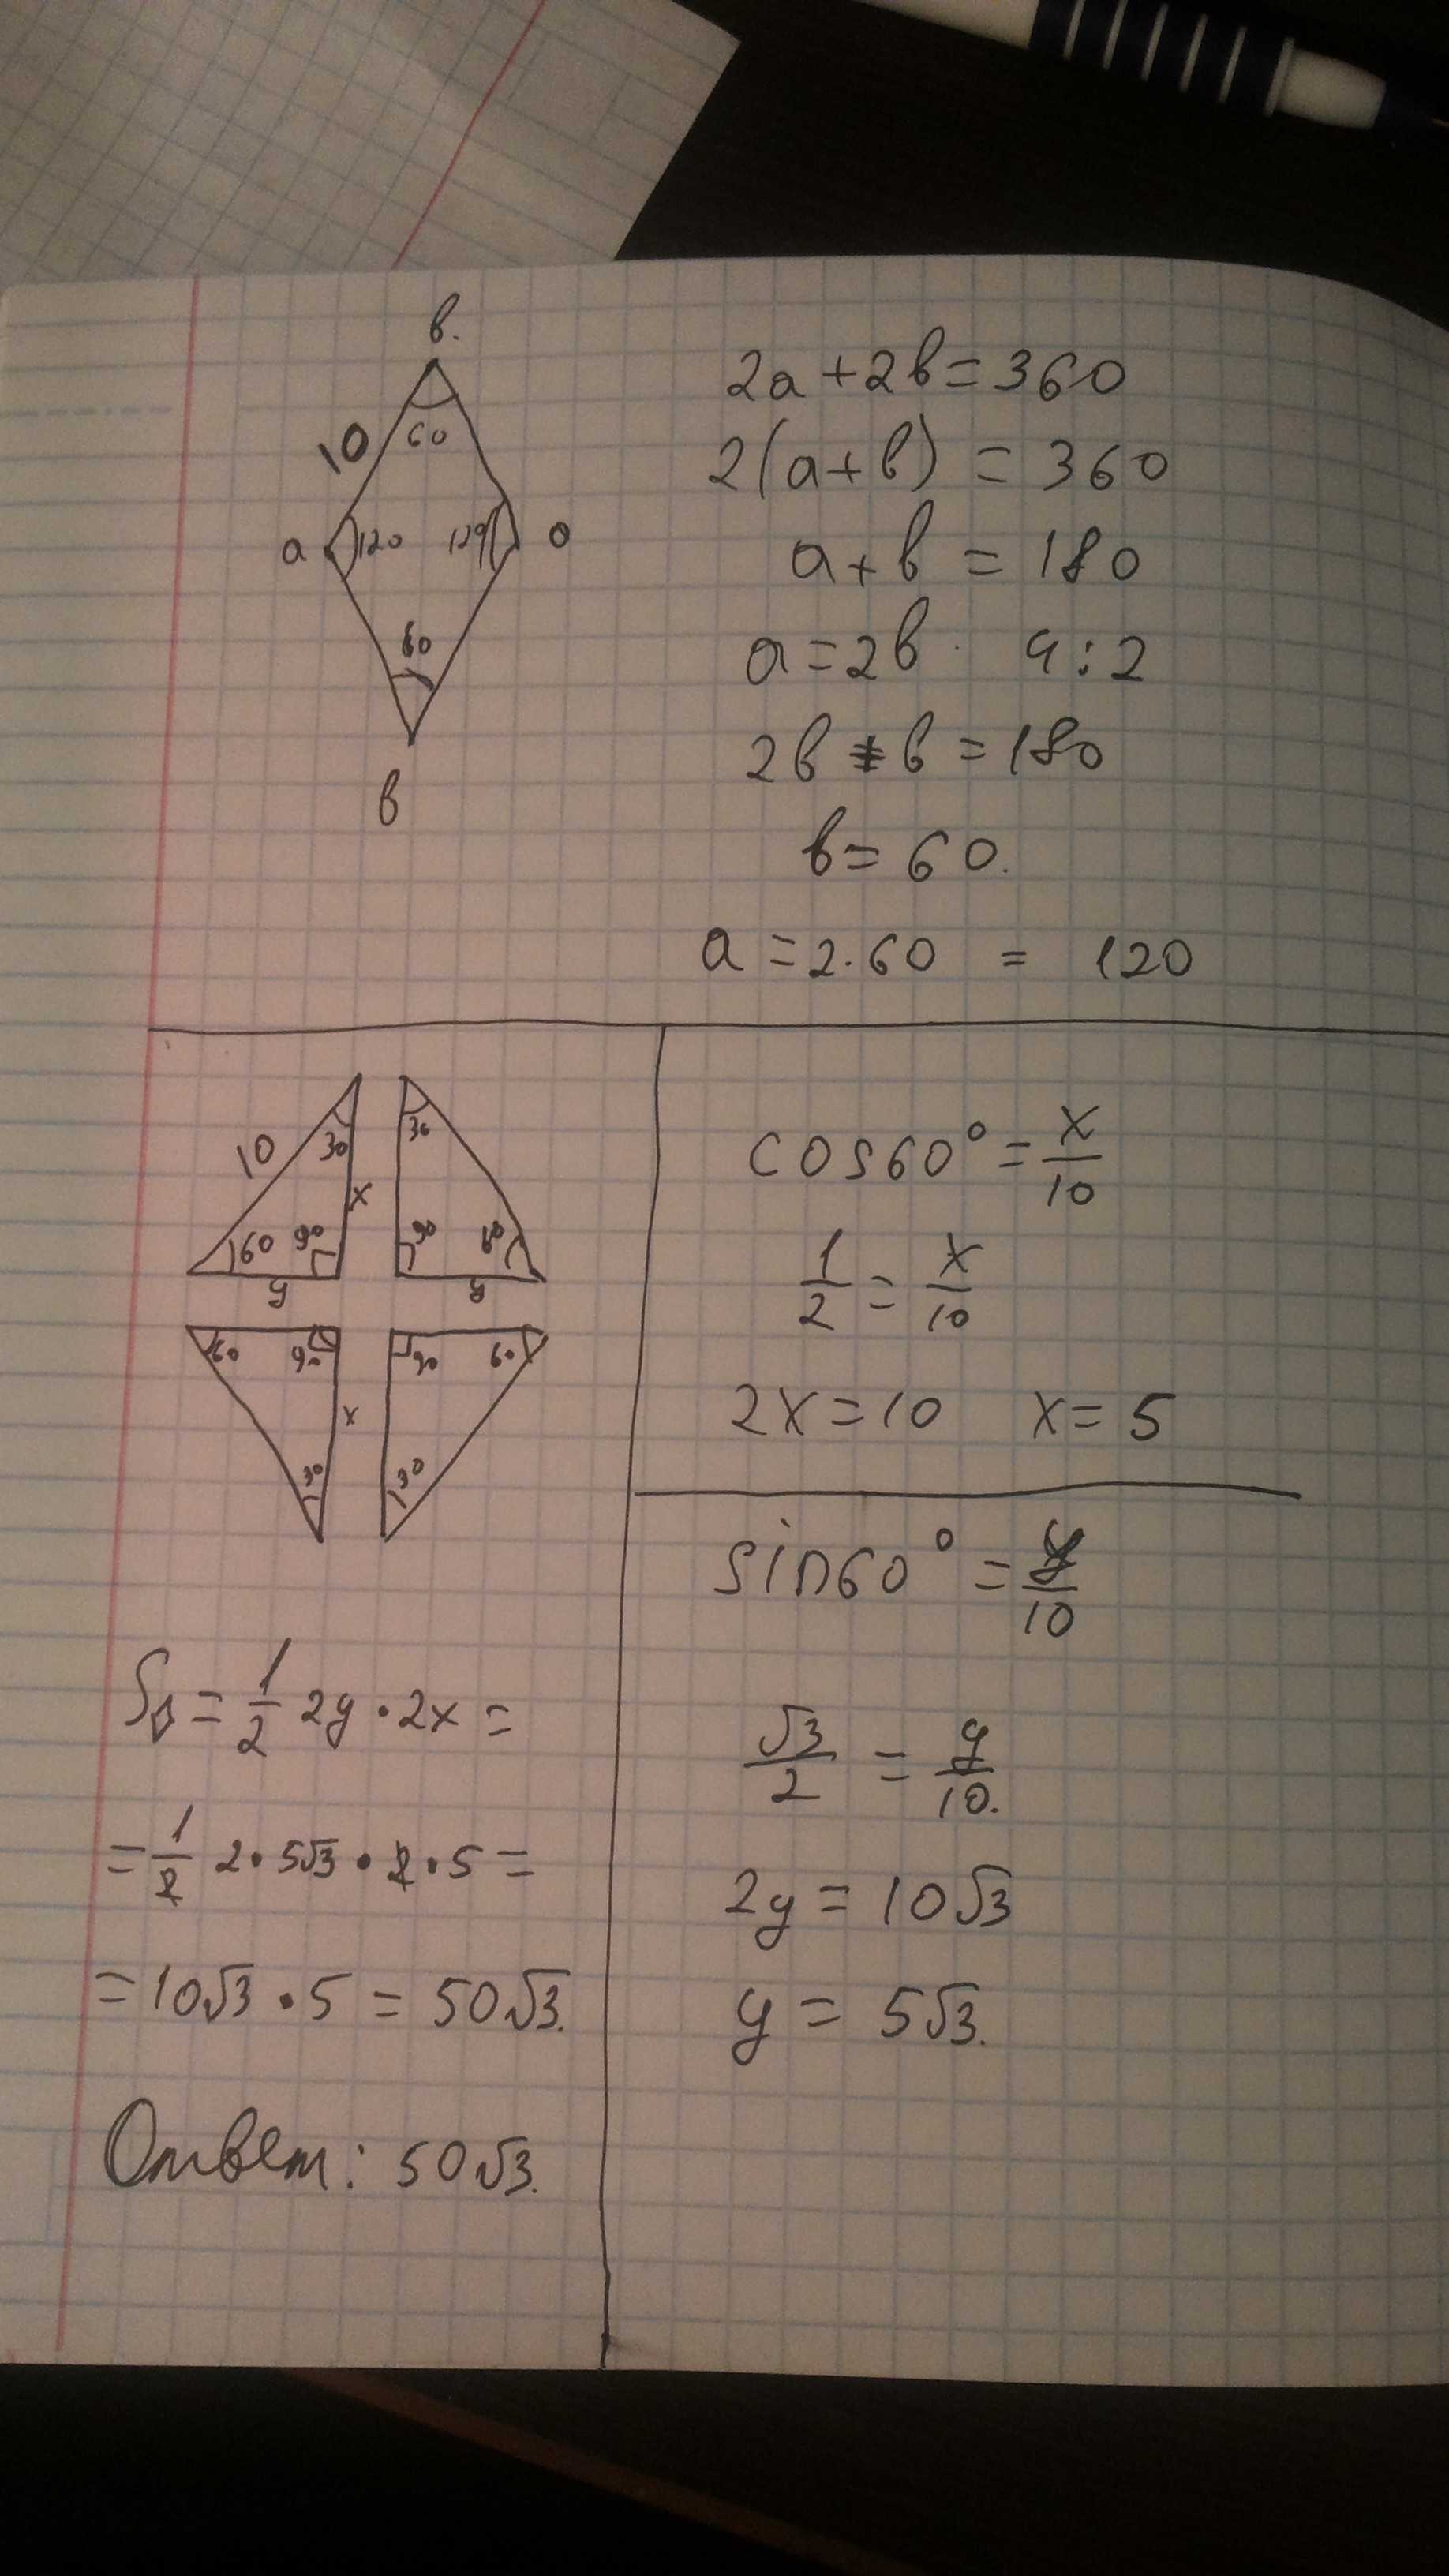 в.
10
60
a 120 120 0
60
в
2a + 2в = 360
2(a + в) = 360
a + в = 180
a = 2в 4 : 2
2в + в = 180
в = 60.
a = 2·60 = 120
10 30 x 60 90 y
30 90 60 y
60 90 x 30
90 60 30
cos60° = x/10
1/2 = x/10
2x = 10 x = 5
sin60° = y/10
√3/2 = y/10.
2y = 10√3
y = 5√3.
S◊ = 1/2 2y · 2x =
= 1/2 2 · 5√3 · 2 · 5 =
= 10√3 · 5 = 50√3.
Ответ: 50√3.